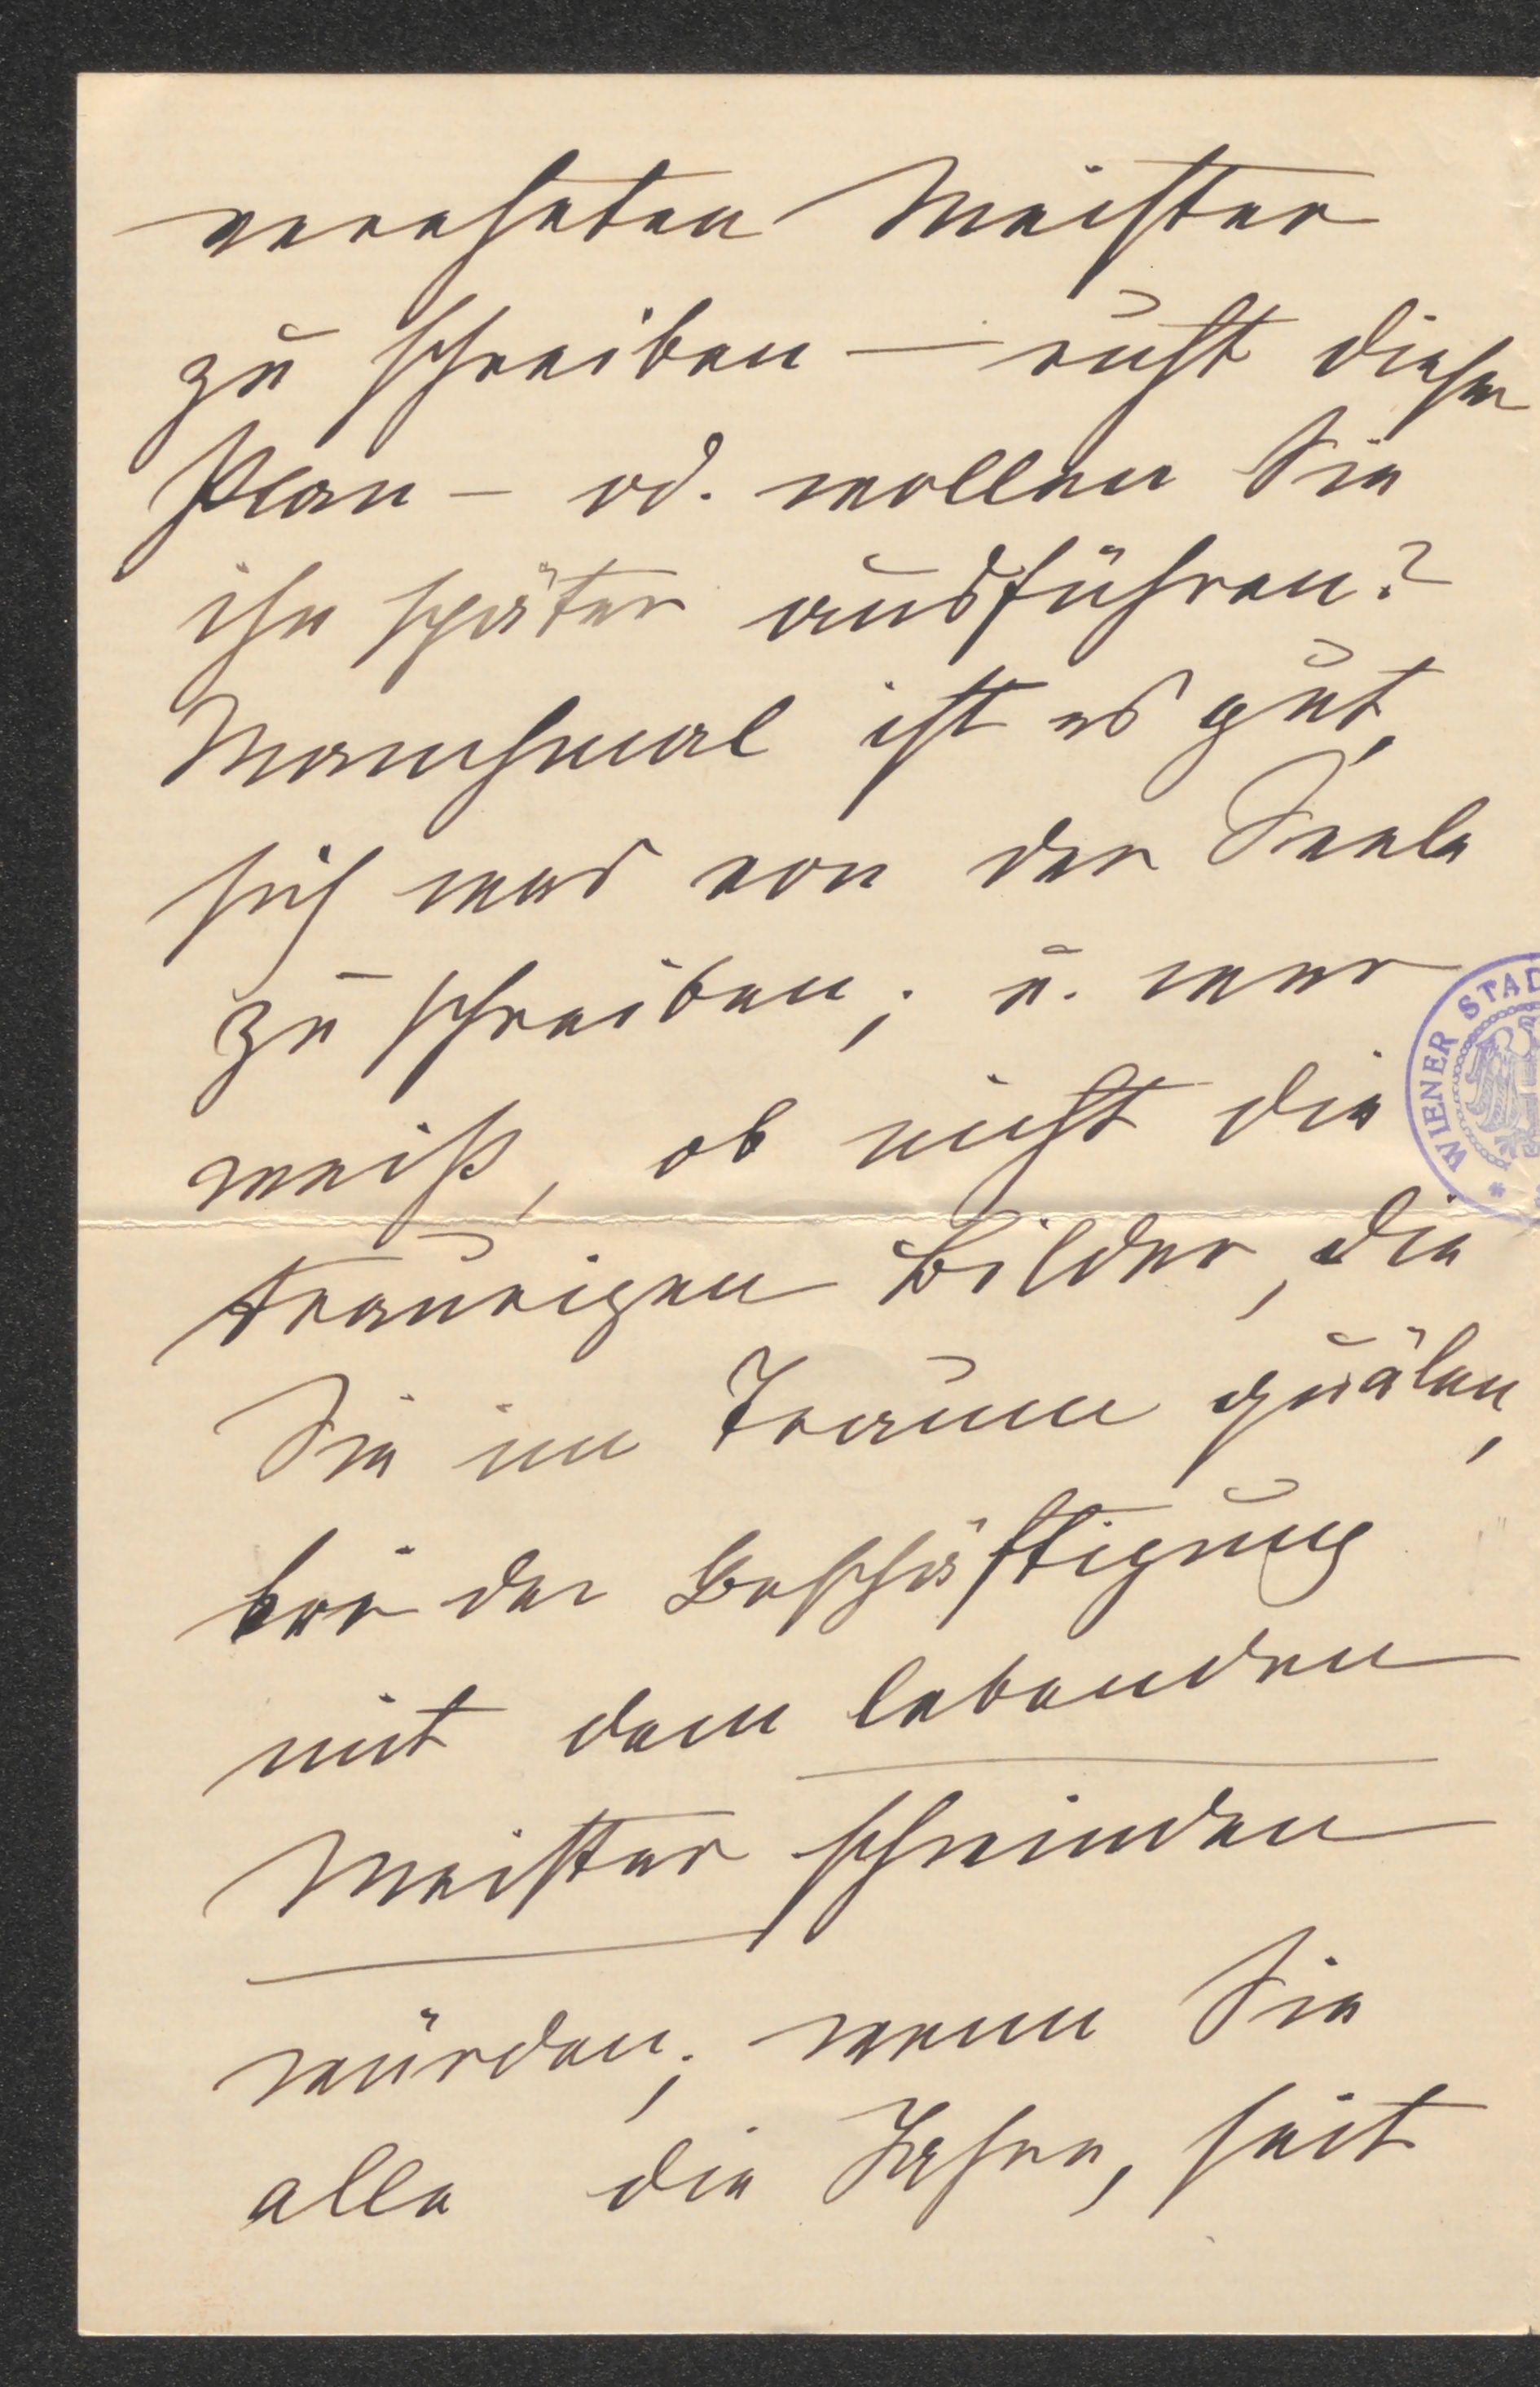 verehrten Meister
zu schreiben — ruht dieser
Plan — od. wollen Sie
ihn später ausführen?
Manchmal ist es gut,
sich was von der Seele
zu schreiben; u. wer
weiß, ob nicht die
traurigen Bilder, die
Sie im Traum quälen,
bei der Beschäftigung
mit dem lebenden
Meister schwinden
würden; wenn Sie
alle die Jahre, seit
WIENER STAD